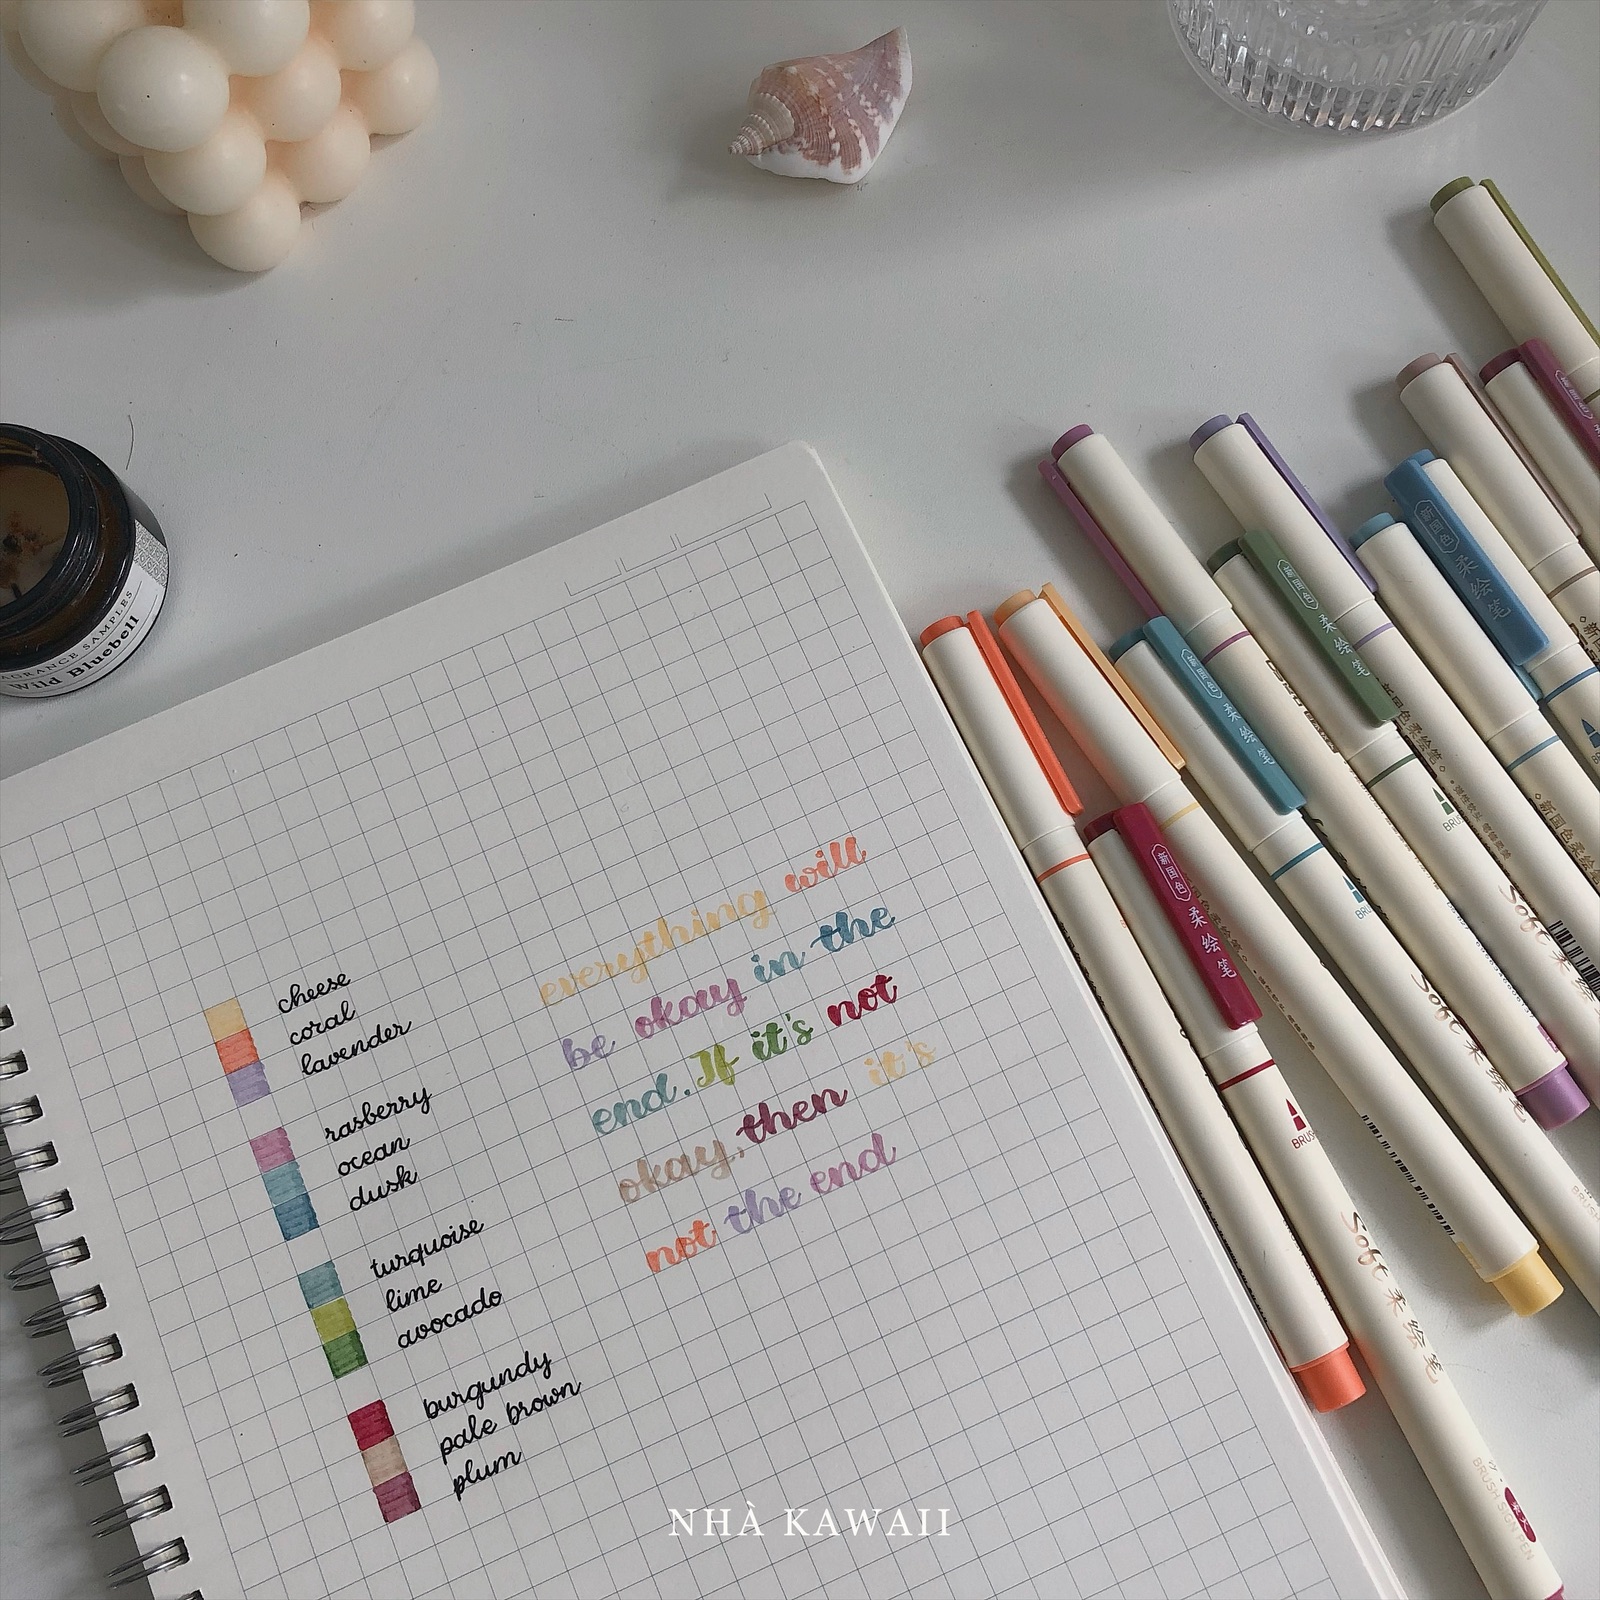 FRAGRANCE SAMPLES
Wild Bluebell
cheese
coral
lavender
rasberry
ocean
dusk
turquoise
lime
avocado
burgundy
pale brown
plum
everything will
be okay in the
end. If it's not
okay, then it's
not the end
新国色 柔绘笔
新国色 柔绘笔
新国色 柔绘笔
新国色 柔绘笔
新国色柔绘笔
新国色柔绘笔
BRUSH
Soft 柔绘笔
Soft 柔绘笔
Soft 柔
BRUSH SIGN PEN
NHÀ KAWAII